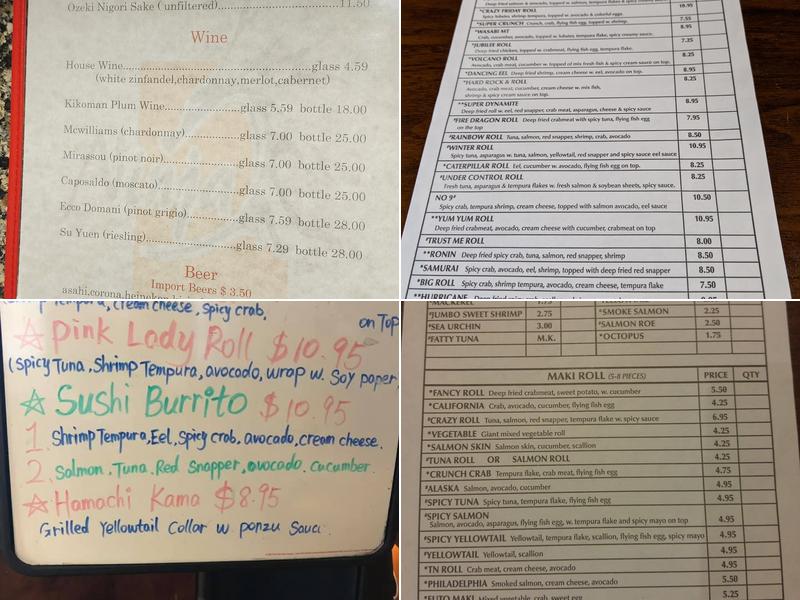 Ozeki Nigori Sake ( unfiltered)..........................11.50
Wine
House Wine................................................glass 4.59
(white zinfandel,chardonnay,merlot,cabernet)
Kikoman Plum Wine...................glass 5.59 bottle 18.00
Mcwilliams (chardonnay)..............glass 7.00 bottle 25.00
Mirassou (pinot noir)....................glass 7.00 bottle 25.00
Caposaldo (moscato).....................glass 7.00 bottle 25.00
Ecco Domani (pinot grigio).............glass 7.59 bottle 28.00
Su Yuen (riesling).......................glass 7.29 bottle 28.00
Beer
Import Beers $ 3.50
*CRAZY FRIDAY ROLL 10.95
Spicy lobster, shrimp tempura, topped w. avocado & colorful eggs.
*SUPER CRUNCH Crunch, crab, flying fish egg, topped w. shrimp. 7.55
*WASABI MT 8.95
Crab, cucumber, avocado, topped w. lobster, tempura flake, spicy creamy sauce.
*JUBILEE ROLL 7.25
Deep fried chicken, topped w. crabmeat, flying fish egg, tempura flake.
*VOLCANO ROLL 8.25
Avocado, crab meat, cucumber w. topped of mix fresh fish & spicy cream sauce on top.
*DANCING EEL Deep fried shrimp, cream cheese w. eel, avocado on top. 8.95
*HARD ROCK & ROLL 8.25
Avocado, crab meat, cucumber, cream cheese w. mix fish,
shrimp & spicy cream sauce on top.
**SUPER DYNAMITE 8.95
Deep fried roll w. eel, red snapper, crab meat, asparagus, cheese & spicy sauce
*FIRE DRAGON ROLL Deep fried crabmeat with spicy tuna, flying fish egg 7.95
on the top
*RAINBOW ROLL Tuna, salmon, red snapper, shrimp, crab, avocado 8.50
*WINTER ROLL 10.95
Spicy tuna, asparagus w. tuna, salmon, yellowtail, red snapper and spicy eel sauce
*CATERPILLAR ROLL Eel, cucumber w. avocado, flying fish egg on top. 8.25
*UNDER CONTROL ROLL 8.25
Fresh tuna, asparagus & tempura flakes w. fresh salmon & soybean sheets, spicy sauce.
NO 9* 10.50
Spicy crab, tempura shrimp, cream cheese, topped with salmon avocado, eel sauce
**YUM YUM ROLL 10.95
Deep fried crabmeat, avocado, cream cheese with cucumber, crabmeat on top
*TRUST ME ROLL 8.00
**RONIN Deep fried spicy crab, tuna, salmon, red snapper, shrimp 8.50
*SAMURAI Spicy crab, avocado, eel, shrimp, topped with deep fried red snapper 8.50
*BIG ROLL Spicy crab, shrimp tempura, avocado, cream cheese, tempura flake 7.50
**HURRICANE
cream cheese, spicy crab,
on Top
☆ Pink Lady Roll $10.95
(Spicy Tuna, Shrimp Tempura, avocado, wrap w. Soy paper,
☆ Sushi Burrito $10.95
1. Shrimp Tempura, Eel, Spicy crab, avocado, cream cheese.
2. Salmon. Tuna. Red Snapper. avocado. cucumber.
☆ Hamachi Kama $8.95
Grilled Yellowtail Collar w ponzu Sauce
*MACKEREL 1.75
*JUMBO SWEET SHRIMP 2.75 *SMOKE SALMON 2.25
*SEA URCHIN 3.00 *SALMON ROE 2.50
*FATTY TUNA M.K. *OCTOPUS 1.75
MAKI ROLL (5-8 PIECES) PRICE QTY
*FANCY ROLL Deep fried crabmeat, sweet potato, w. cucumber 5.50
*CALIFORNIA Crab, avocado, cucumber, flying fish egg 4.25
*CRAZY ROLL Tuna, salmon, red snapper, tempura flake w. spicy sauce 6.95
*VEGETABLE Giant mixed vegetable roll 4.25
*SALMON SKIN Salmon skin, cucumber, scallion 4.25
*TUNA ROLL OR SALMON ROLL 4.25
*CRUNCH CRAB Tempura flake, crab meat, flying fish egg 4.75
*ALASKA Salmon, avocado, cucumber 4.95
*SPICY TUNA Spicy tuna, tempura flake, flying fish egg 4.95
*SPICY SALMON
Salmon, avocado, asparagus, flying fish egg, w. tempura flake and spicy mayo on top 4.95
*SPICY YELLOWTAIL Yellowtail, tempura flake, scallion, flying fish egg, spicy mayo 4.95
*YELLOWTAIL Yellowtail, scallion 4.95
*TN ROLL Crab meat, cream cheese, avocado 4.95
*PHILADELPHIA Smoked salmon, cream cheese, avocado 5.50
*FUTO MAKI Mixed vegetable, crab, sweet egg 5.25